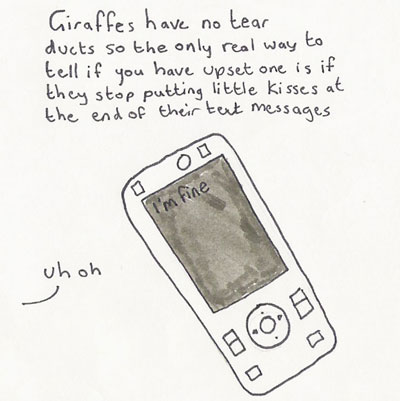 Giraffes have no tear
ducts so the only real way to
tell if you have upset one is if
they stop putting little kisses at
the end of their text messages
I'm fine
uh oh